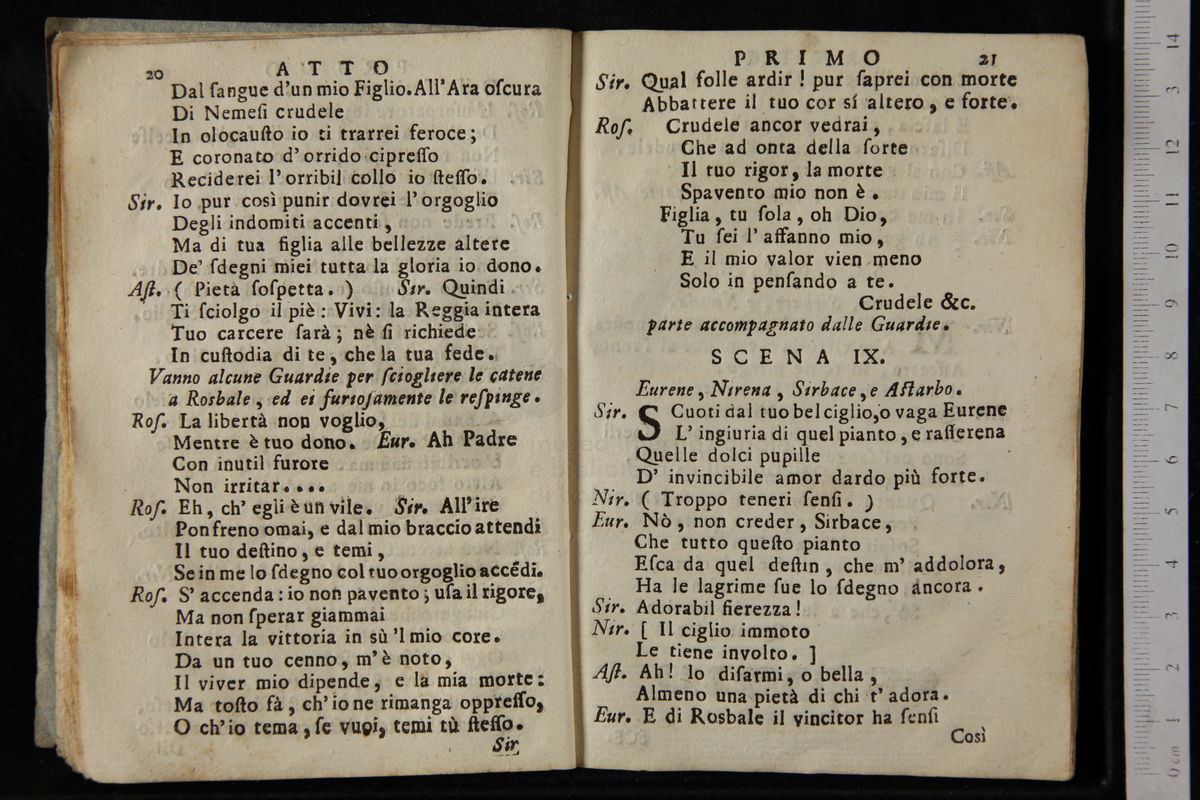 20
ATTO
Dal ſangue d'un mio Figlio. All'Ara oſcura
Di Nemeſi crudele
In olocauſto io ti trarrei feroce;
E coronato d'orrido cipreſſo
Reciderei l'orribil collo io ſteſſo.
Sir. Io pur così punir dovrei l'orgoglio
Degli indomiti accenti,
Ma di tua figlia alle bellezze altere
De' ſdegni miei tutta la gloria io dono.
Aſt. ( Pietà ſoſpetta. ) Sir. Quindi
Ti ſciolgo il piè: Vivi: la Reggia intera
Tuo carcere ſarà; nè ſi richiede
In cuſtodia di te, che la tua fede.
Vanno alcune Guardie per ſciogliere le catene
a Rosbale, ed ei furioſamente le reſpinge.
Roſ. La libertà non voglio,
Mentre è tuo dono. Eur. Ah Padre
Con inutil furore
Non irritar....
Roſ. Eh, ch'egli è un vile. Sir. All'ire
Pon freno omai, e dal mio braccio attendi
Il tuo deſtino, e temi,
Se in me lo ſdegno col tuo orgoglio accédi.
Roſ. S'accenda: io non pavento; uſa il rigore,
Ma non ſperar giammai
Intera la vittoria in sù 'l mio core.
Da un tuo cenno, m'è noto,
Il viver mio dipende, e la mia morte:
Ma toſto fà, ch'io ne rimanga oppreſſo,
O ch'io tema, ſe vuoi, temi tù ſteſſo.
Sir
PRIMO
21
Sir. Qual folle ardir! pur ſaprei con morte
Abbattere il tuo cor sí altero, e forte.
Roſ. Crudele ancor vedrai,
Che ad onta della ſorte
Il tuo rigor, la morte
Spavento mio non è.
Figlia, tu ſola, oh Dio,
Tu ſei l'affanno mio,
E il mio valor vien meno
Solo in penſando a te.
Crudele &c.
parte accompagnato dalle Guardie.
SCENA IX.
Eurene, Nirena, Sirbace, e Aſtarbo.
Sir. SCuoti dal tuo bel ciglio, o vaga Eurene
L'ingiuria di quel pianto, e raſſerena
Quelle dolci pupille
D'invincibile amor dardo più forte.
Nir. ( Troppo teneri ſenſi. )
Eur. Nò, non creder, Sirbace,
Che tutto queſto pianto
Eſca da quel deſtin, che m'addolora,
Ha le lagrime ſue lo ſdegno ancora.
Sir. Adorabil fierezza!
Nir. [ Il ciglio immoto
Le tiene involto. ]
Aſt. Ah! lo diſarmi, o bella,
Almeno una pietà di chi t'adora.
Eur. E di Rosbale il vincitor ha ſenſi
Così